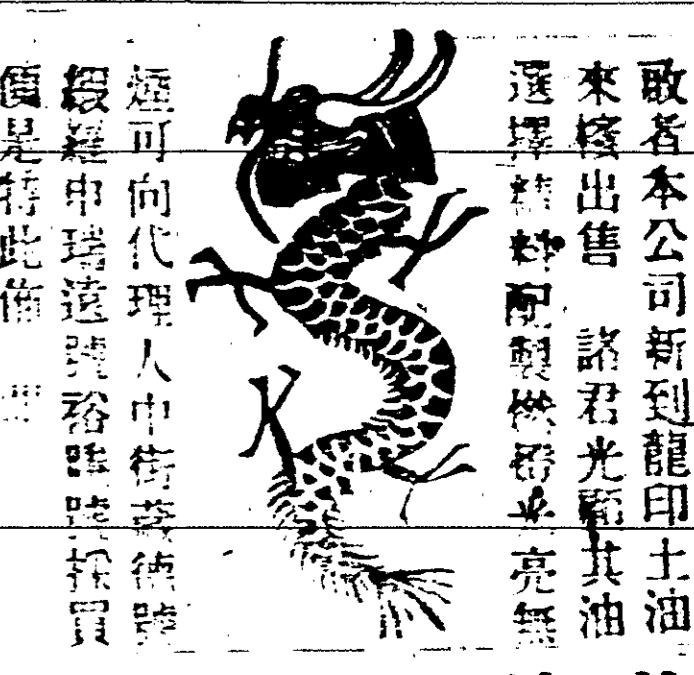 敬者本公司新到龍印土油
來檳出售 諸君光顧其油
選擇精料配製燃㸃光亮無
煙可向代理人中街萬德號
緞羅申瑞遠號裕號採買
價是特此佈